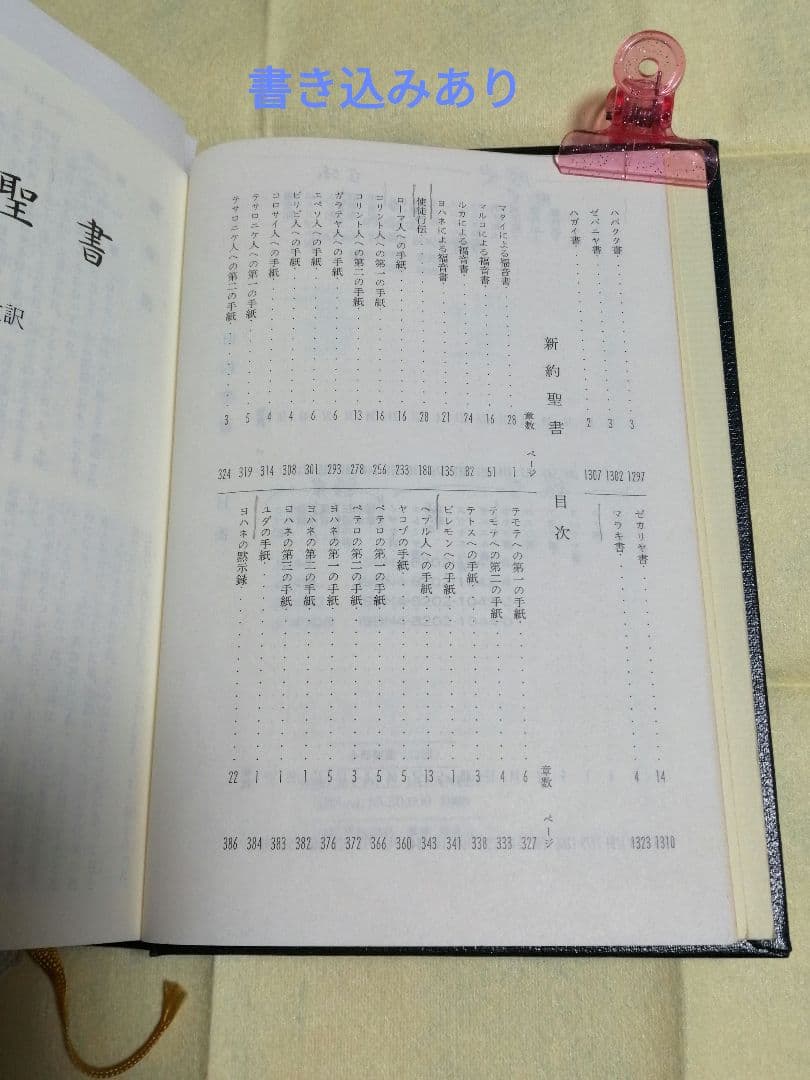 書き込みあり
聖書
訳
ハバクク書 3 1297
ゼパニヤ書 3 1302
ハガイ書 2 1307
ゼカリヤ書 14 1310
マラキ書 4 1323
新約聖書 目次
章数 ページ
マタイによる福音書 28 1
マルコによる福音書 16 51
ルカによる福音書 24 82
ヨハネによる福音書 21 135
使徒行伝 28 180
ローマ人への手紙 16 233
コリント人への第一の手紙 16 256
コリント人への第二の手紙 13 278
ガラテヤ人への手紙 6 293
エペソ人への手紙 6 301
ピリピ人への手紙 4 308
コロサイ人への手紙 4 314
テサロニケ人への第一の手紙 5 319
テサロニケ人への第二の手紙 3 324
章数 ページ
テモテへの第一の手紙 6 327
テモテへの第二の手紙 4 333
テトスへの手紙 3 338
ピレモンへの手紙 1 341
ヘブル人への手紙 13 343
ヤコブの手紙 5 360
ペテロの第一の手紙 5 366
ペテロの第二の手紙 3 372
ヨハネの第一の手紙 5 376
ヨハネの第二の手紙 1 382
ヨハネの第三の手紙 1 383
ユダの手紙 1 384
ヨハネの黙示録 22 386